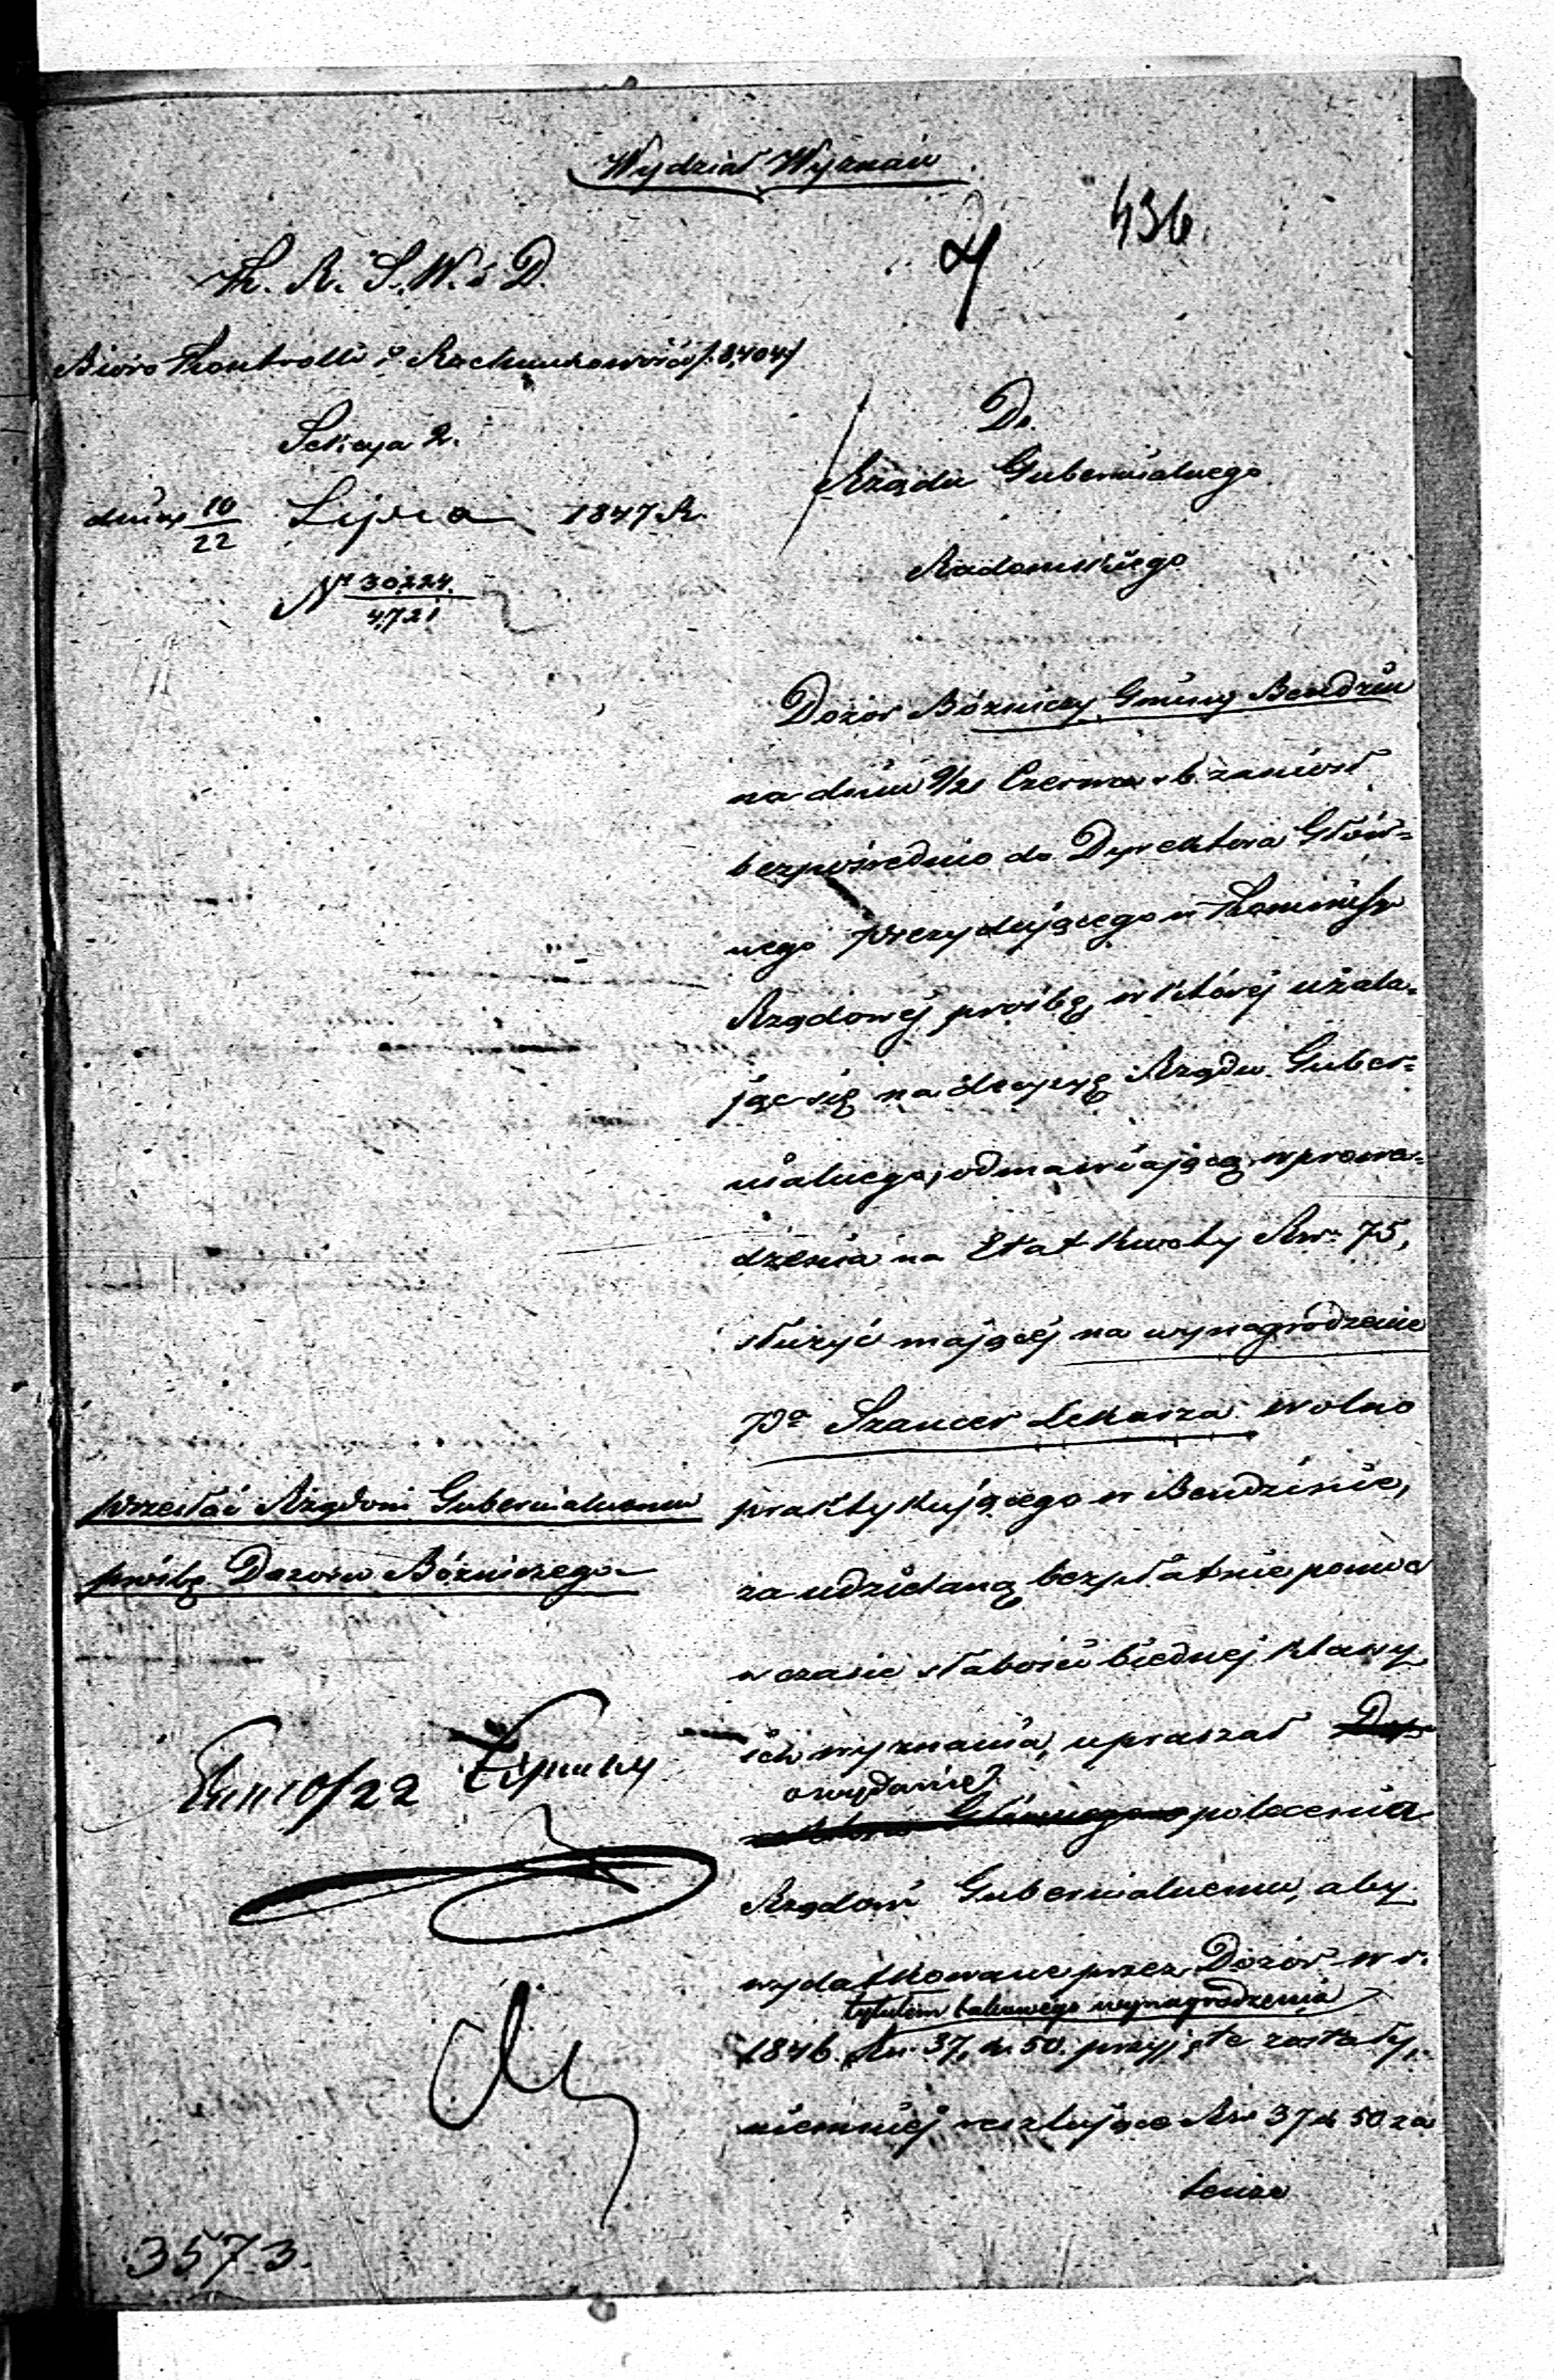 Wydział Wyznań
436.
K. R. S. W. i D.
Biuro Kontrolli i Rachunkowości /:8,404:/
Sekcya 2.
dnia 10/22 Lipca 1847 R.
N° 30224/4721
Do
Rządu Gubernialnego
Radomskiego
Dozór Bóżniczy Gminy Bendzin
na dniu 9/21 Czerwca r b. zaniósł
bezpośrednio do Dyrektora Głów=
nego prezydującego w Kommissyi
Rządowej prośbę, w której użala=
jąc się na decyzyę Rządu Guber=
nialnego, odmawiającą wprowa=
dzenia na Etat kwoty Rsr. 75,
służyć mającej na wynagrodzenie
Pa Szancer Lekarza wolno
praktykującego w Bendzinie,
za udzielaną bezpłatnie pomoc
w czasie słabości biednej klassy
ich wyznania, upraszał
o wydanie
polecenia
Rządowi Gubernialnemu, aby
wydatkowane przez Dozór w r.
tytułem takowego wynagrodzenia
1846. Rsr. 37, k. 50. przyjęte zostały,
niemniej resztujące Rsr 37 k 50 za
tenże
przesłać Rządowi Gubernialnemu
prośbę Dozoru Bóżniczego
Dnia 10/22 Lipca
3573.